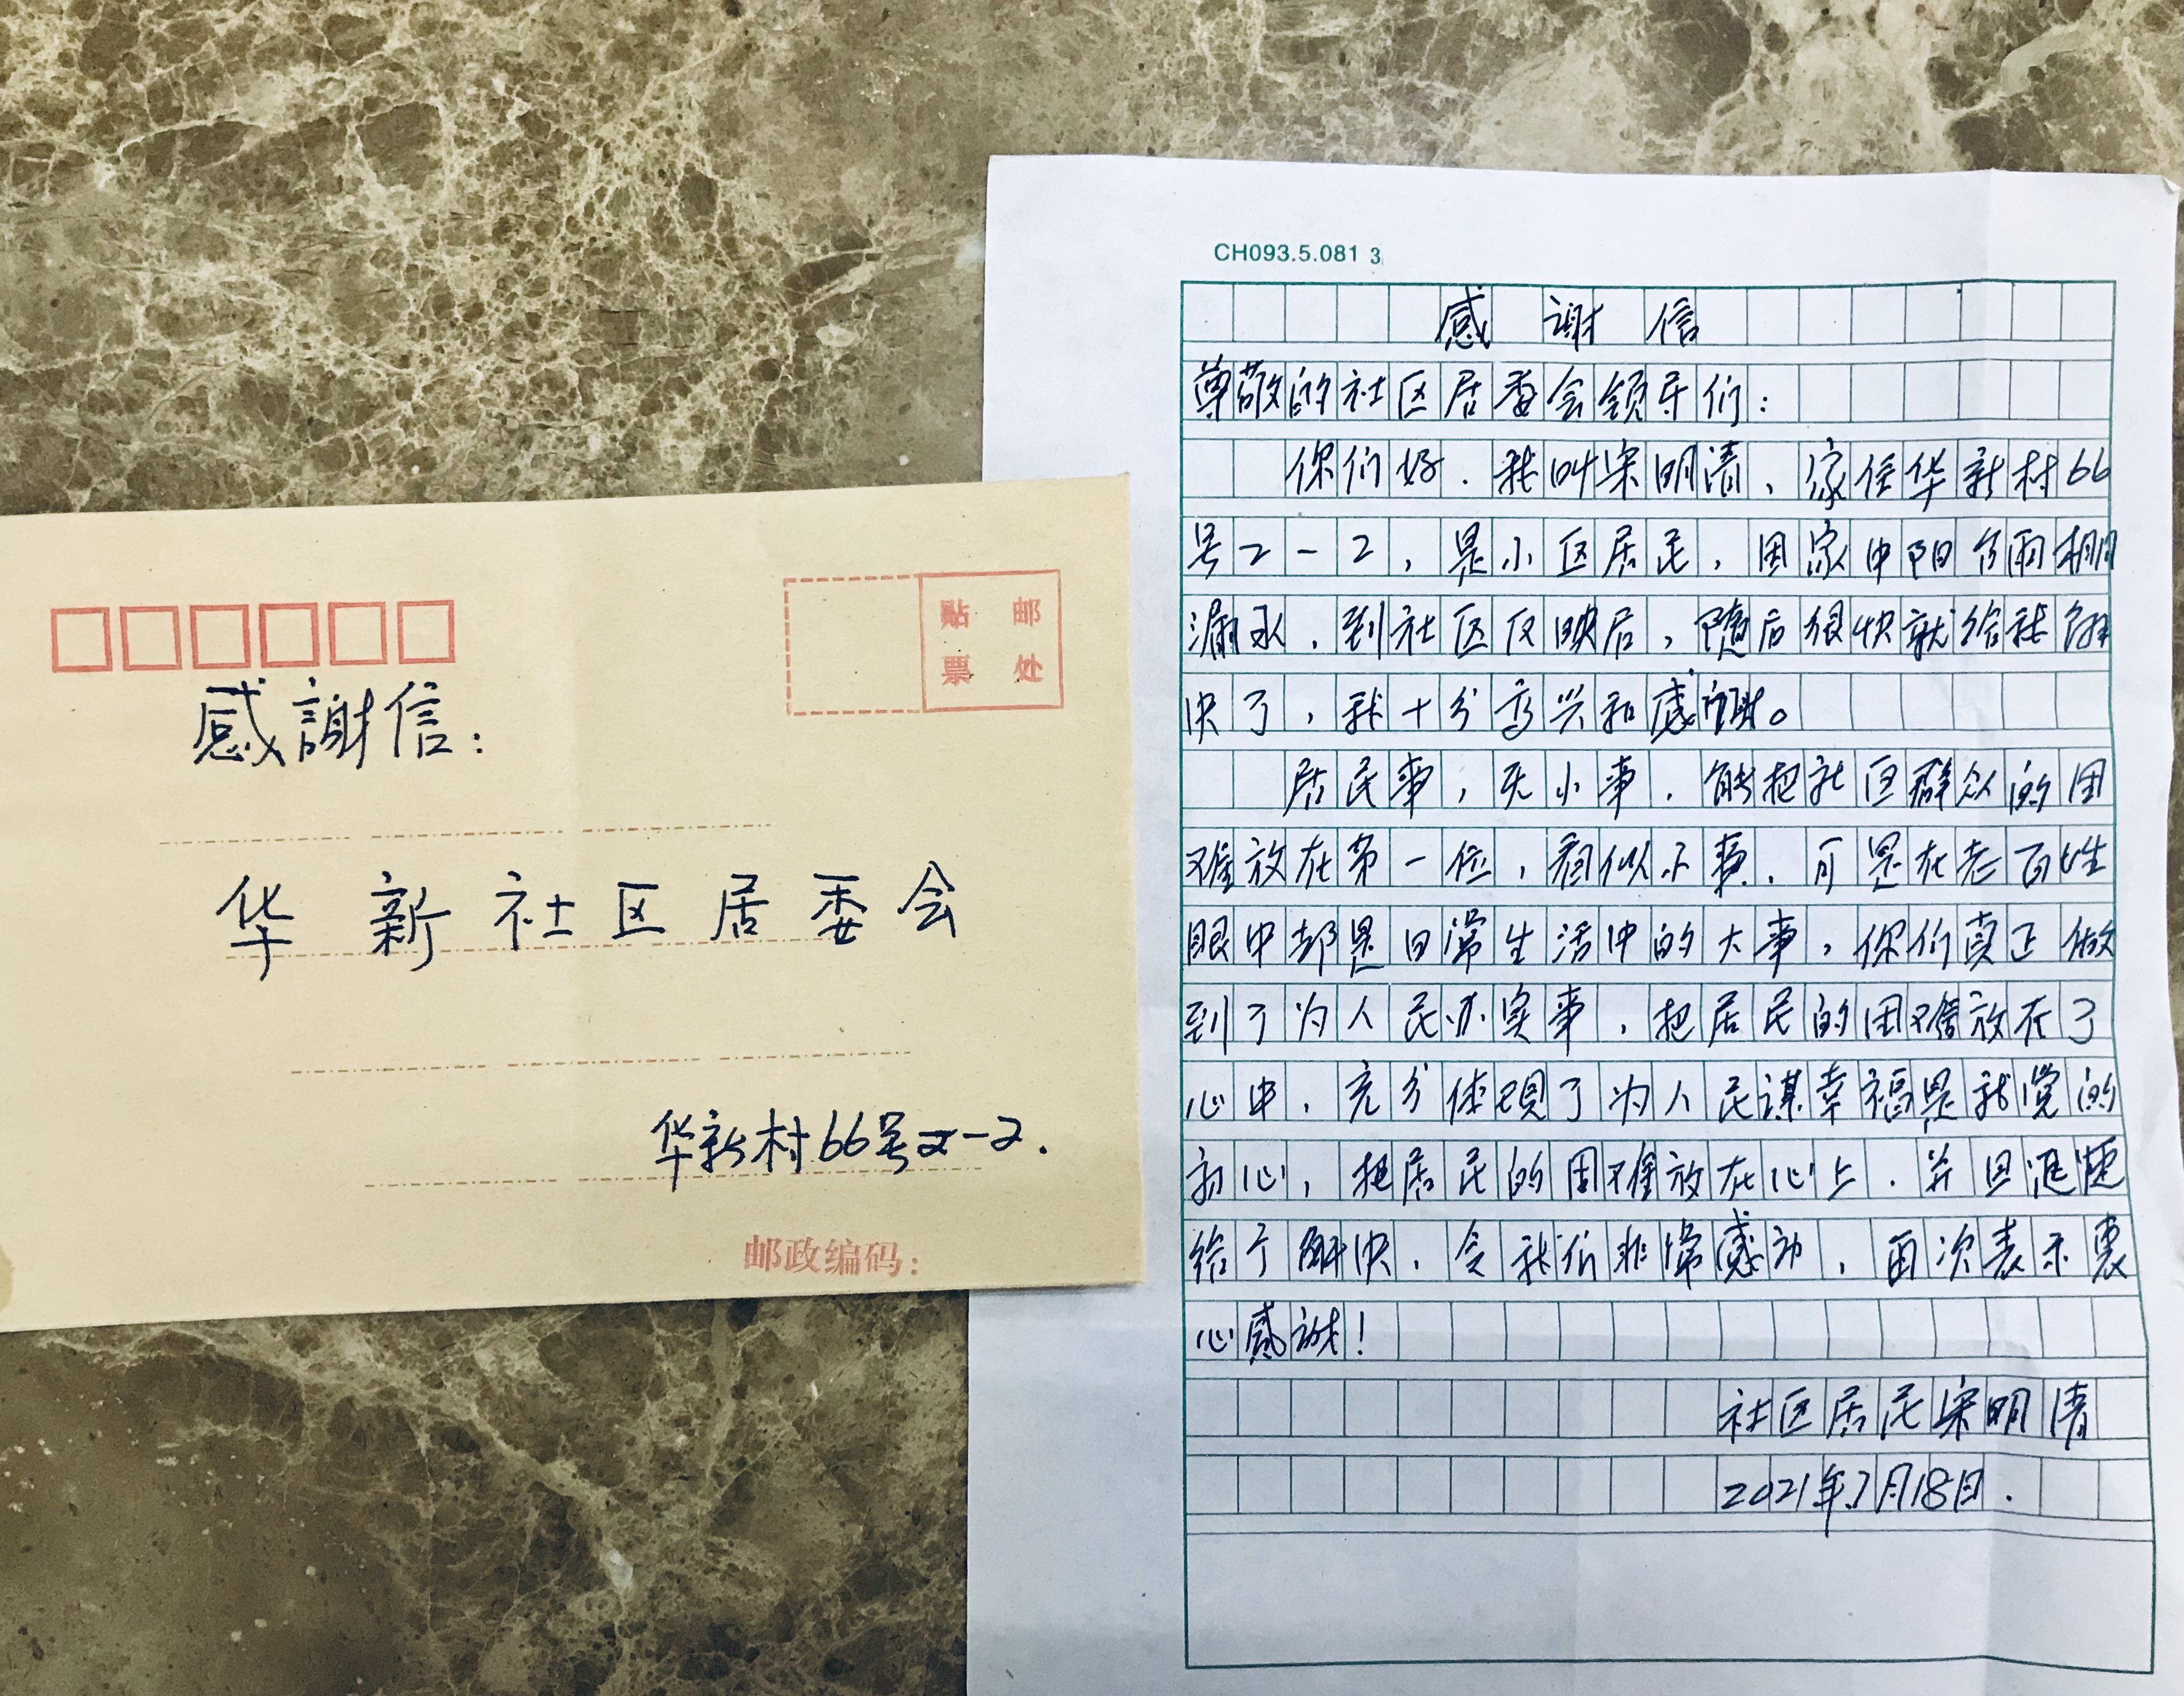 贴邮
票处
感謝信：
华新社区居委会
华新村66号2-2.
邮政编码：
CH093.5.081 3
感谢信
尊敬的社区居委会领导们：
你们好．我叫宋明清、家住华新村66
号2-2，是小区居民，因家中阳台雨棚
漏水．到社区反映后，随后很快就给我解
决了，我十分高兴和感谢。
居民事，无小事．能把社区群众的困
难放在第一位，看似小事．可是在老百姓
眼中却是日常生活中的大事，你们真正做
到了为人民办实事．把居民的困难放在了
心中．充分体现了为人民谋幸福是我党的
初心，把居民的困难放在心上．并且
给了解决．令我们非常感动．再次表示衷
心感谢！
社区居民宋明清
2021年7月18日．